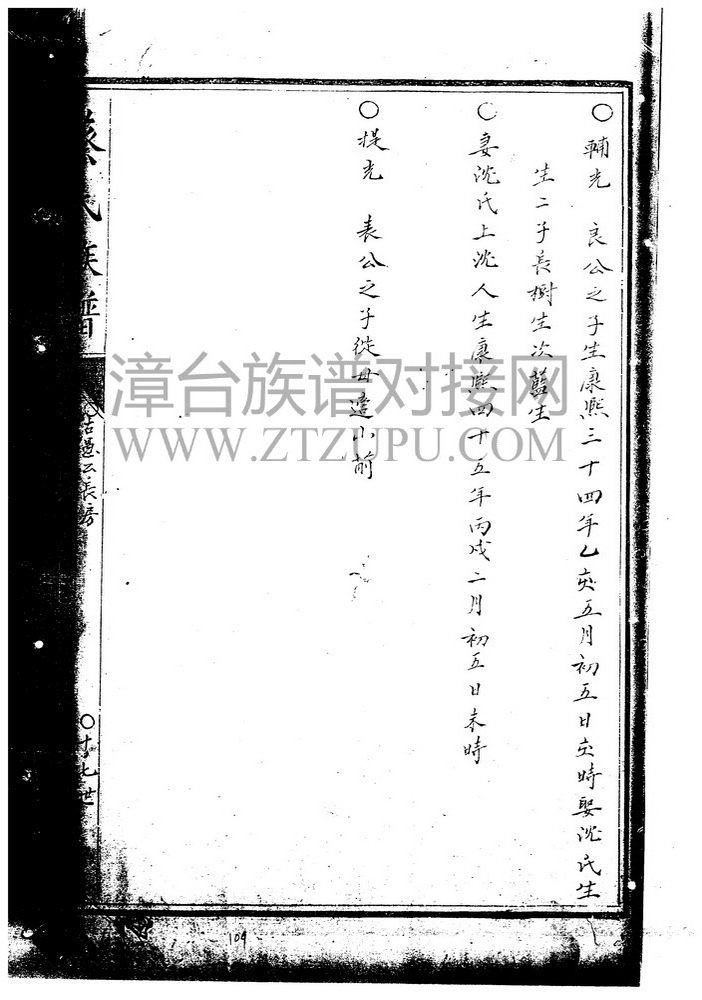 ○輔光 良公之子生康熙三十四年乙亥五月初五日亥時娶沈氏生
生二子長樹生次藍生
○妻沈氏上沈人生康熙四十五年丙戍二月初五日未時
○提光 表公之子從母遠小前
氏族譜
公長房
○十七世
109
漳台族谱对接网
WWW.ZTZUPU.COM